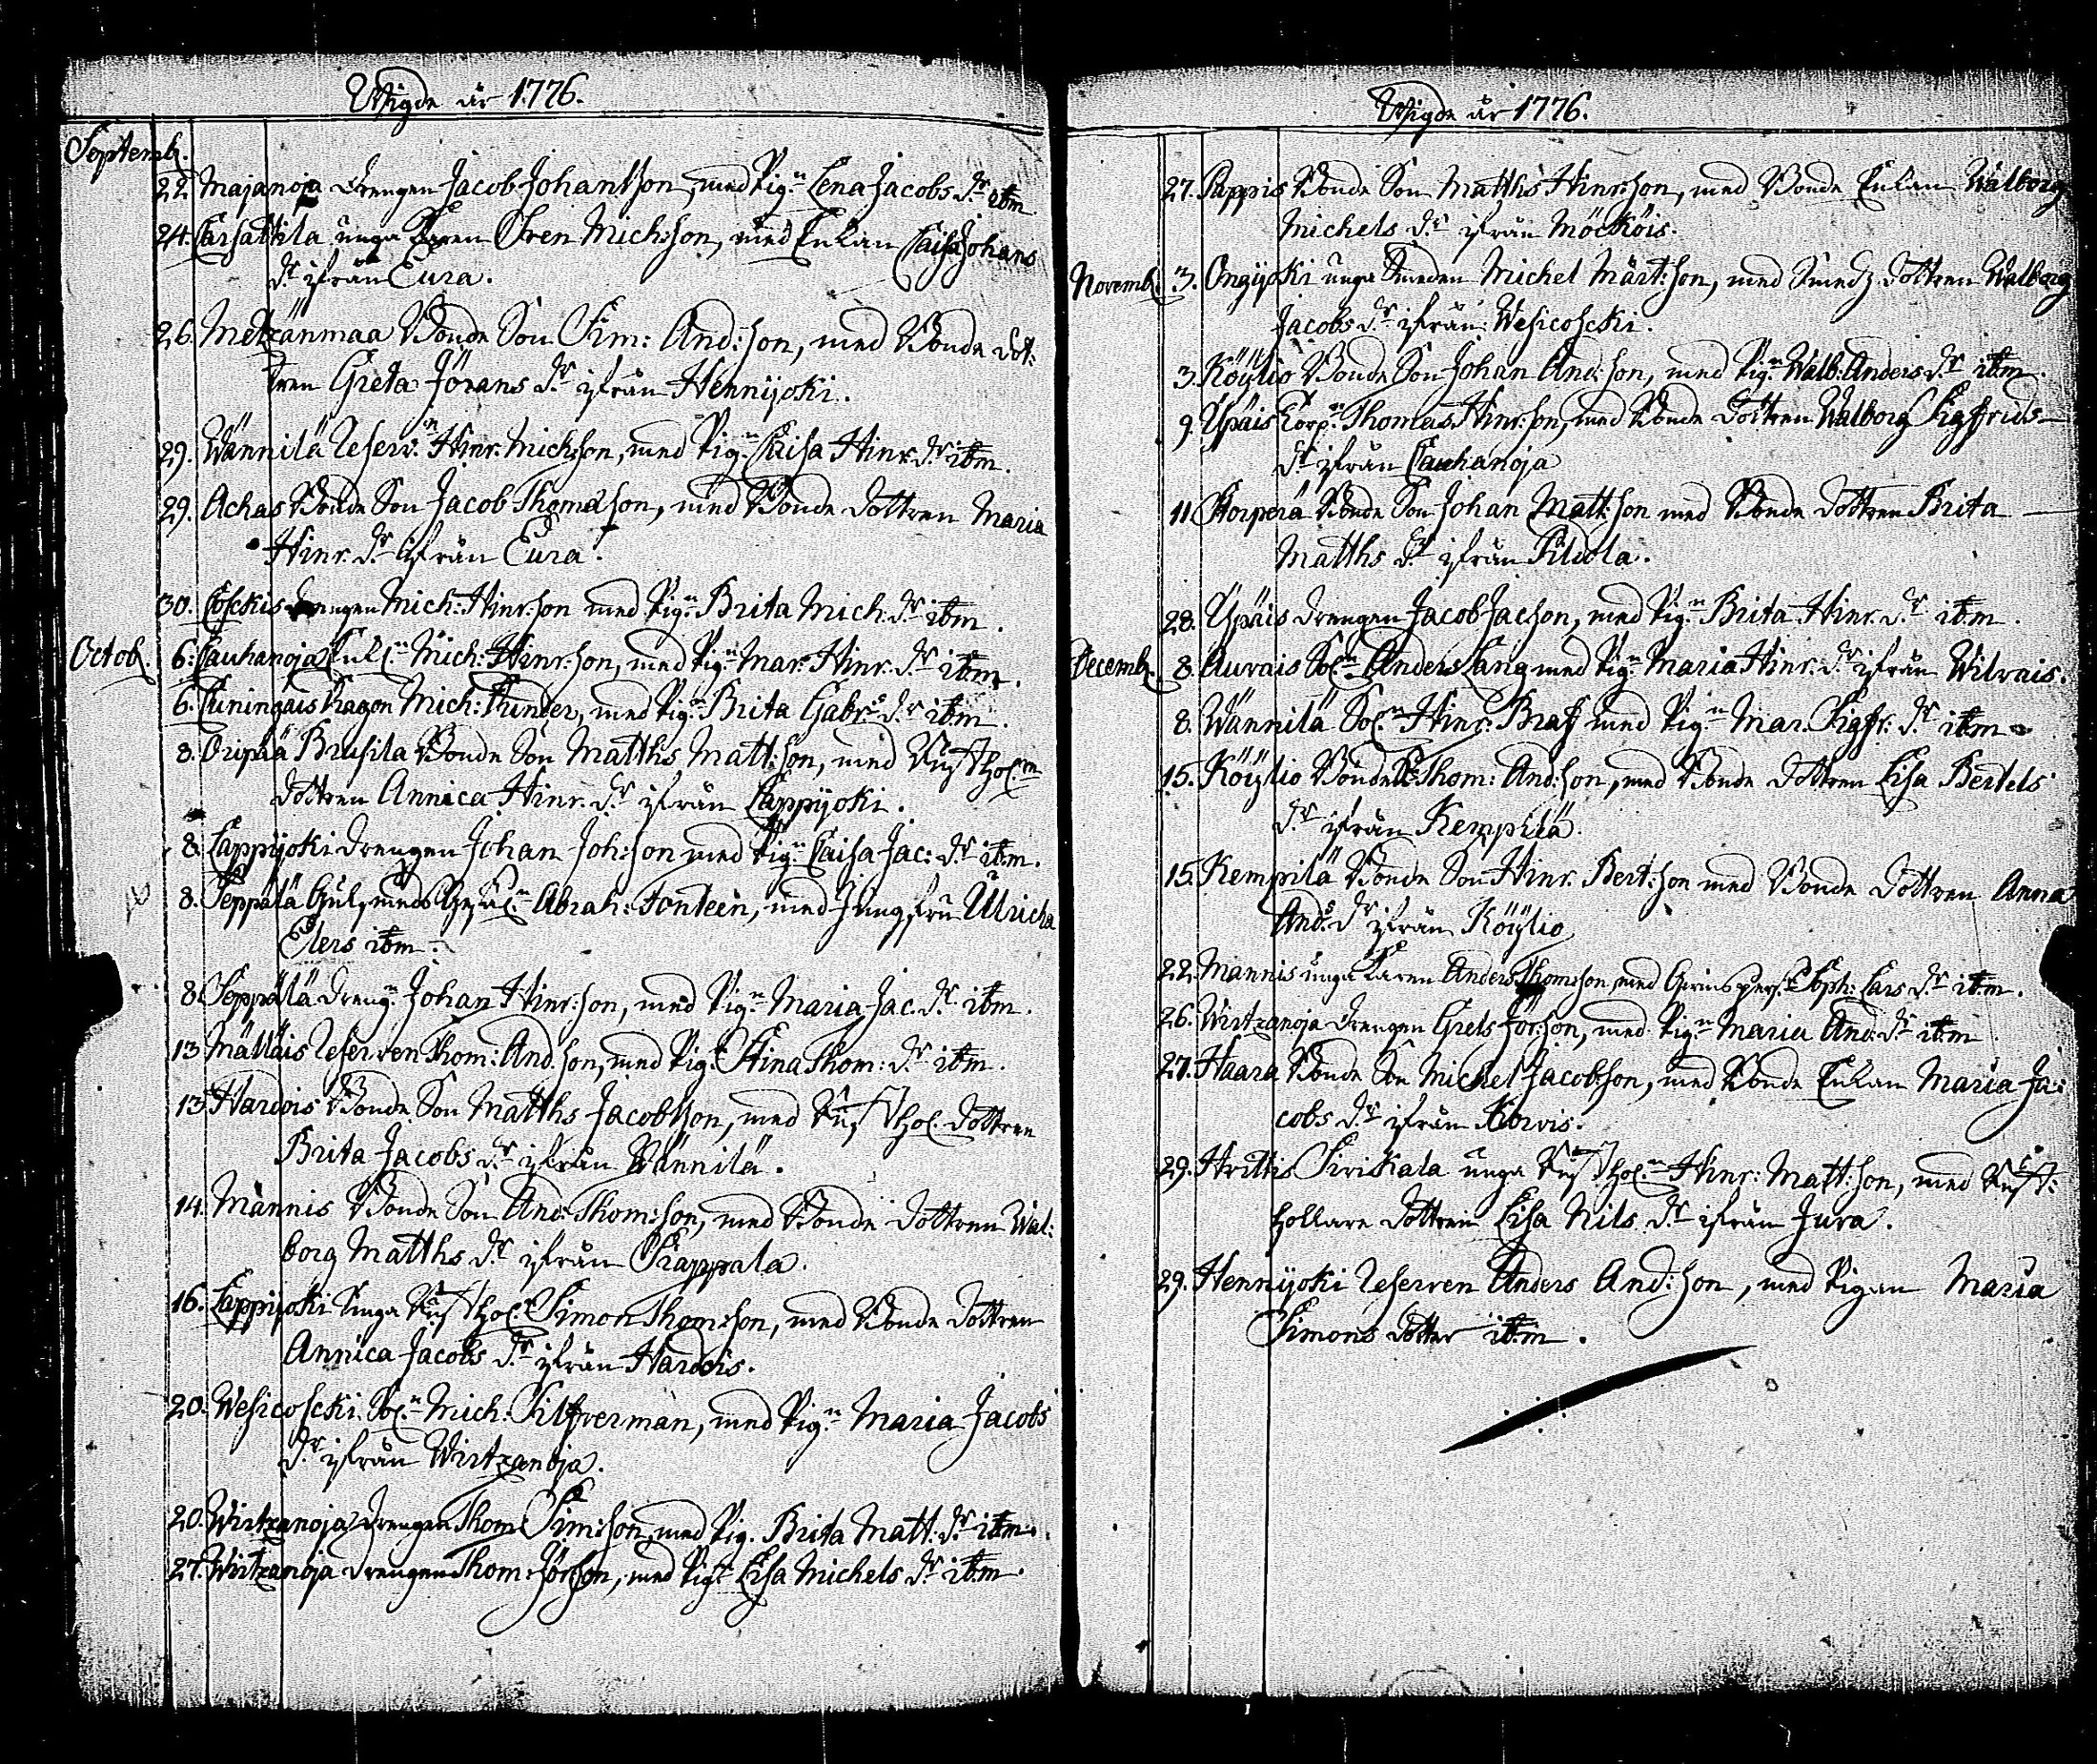 Wigde år 1776.
Septemb.
22. Majanoja Drengen Jacob Johansson, med Pig.n Lena Jacobs d.r itm
24. Carsattila unga Karen Sven Mich:son, med Enkan Caisa Johans
d.r ifrån Eura.
26. Metzänmaa Bonde Son Sim: And:son, med Bonde dot:
tren Greta Jörans d.r ifrån Hennijoki.
29. Wännilä Reserv:n Hinr. Michson, med Pig.n Caisa Hinr. d.r itm.
29. Achas Bonde Son Jacob Thomasson, med Bonde dottren Maria
Hinr. d.r ifrån Eura.
30. Coskis drengen Mich: Hinr:son med Pig.n Brita Mich. d.r itm.
Octob. 6. Cauhanoja Enkl.n Mich: Hinr:son, med Pig.n Mar: Hinr. d.r itm.
6. Cuningais Dragon Mich: Thunder, med Pig.n Brita Gabr:s d.r itm.
8. Oripää Brusila Bonde Son Matths Matt:son, med Rusthol.n
dottren Annica Hinr. d.r ifrån Lappijoki.
8. Lappijoki drengen Johan Joh:son med Pig.n Caisa Jac: d.r itm.
8. Seppälä Gulsmeds Gesäl.n Abrah: Fonteen, med Jungfru Ulricha
Elers itm.
8. Seppälä dreng.n Johan Hinr:son, med Pig.n Maria Jac. d.r itm.
13. Mälläis Reserven Thom: And.son, med Pig.n Stina Thom: d.r itm.
13. Harois Bonde Son Matths Jacobsson, med Rusthol. dottren
Brita Jacobs d.r ifrån Wännilä.
14. Männis Bonde Son And: Thom:son, med Bonde dottren Wal:
borg Matths d.r ifrån Trappala.
16. Lappijoki Unga Rusthol.n Simon Thom:son, med Bonde dottren
Annica Jacobs d.r ifrån Harois.
20. Wesicoscki Sol.n Mich: Silfverman, med Pig.n Maria Jacobs
d.r ifrån Wirtzanoja.
20. Wirtzanoja drengen Thom: Sim:son, med Pig. Brita Matt: d.r itm.
27. Wirtzanoja drengen Thom: Jörson, med Pig.n Lisa Michels d.r itm.
Wigde år 1776.
27. Pappis Bonde Son Matths Hinr:son, med Bonde Enkan Walborg
Michels d.r ifrån Möcköis.
Novemb. 3. Ongijoki unga Smeden Michel Märt:son, med Smeds dottren Walborg
Jacobs d.r ifrån Wesicoscki.
3. Köylio Bonde Son Johan And:son, med Pig.n Walb: Anders d.r itm.
9. Ypäis Torp.n Thomas Hinr:son, med Bonde dottren Walborg Sigfrids
d.r ifrån Cauhanoja
11. Korpera Bonde Son Johan Matt:son med Bonde dottren Brita
Matths d.r ifrån
28. Ypäis drengen Jacob Jacson, med Pig.n Brita Hinr. d.r itm.
Decemb. 8. Auvais Sol.n Anders Lang med Pig.n Maria Hinr. d.r ifrån Wilvais.
8. Wännilä Sol.n Hinr: Braf med Pig.n Mar. Sigfr. d.r itm
15. Köylio Bonde Thom: And:son, med Bonde dottren Lisa Bertels
d.r ifrån Kempilä.
15. Kempilä Bonde Son Hinr. Bert:son med Bonde dottren Anna
And:s d.r ifrån Köylio
22. Mannis unga Karen Anders Thom:son, med Soph: Lars d.r itm.
26. Wirtzanoja drengen Grels Jörson, med Pig.n Maria And: d.r itm.
27. Haara Bonde Son Michel Jacobsson, med Bonde Enkan Maria Ja:
cobs d.r ifrån Korvis.
29. Hrittis Sirikala unga Rusthol.n Hinr: Matt:son, med Rust:
hollare dottren Lisa Nils d.r ifrån Jura.
29. Hennijoki Reserven Anders And:son, med Pigan Maria
Simons dotter itm.